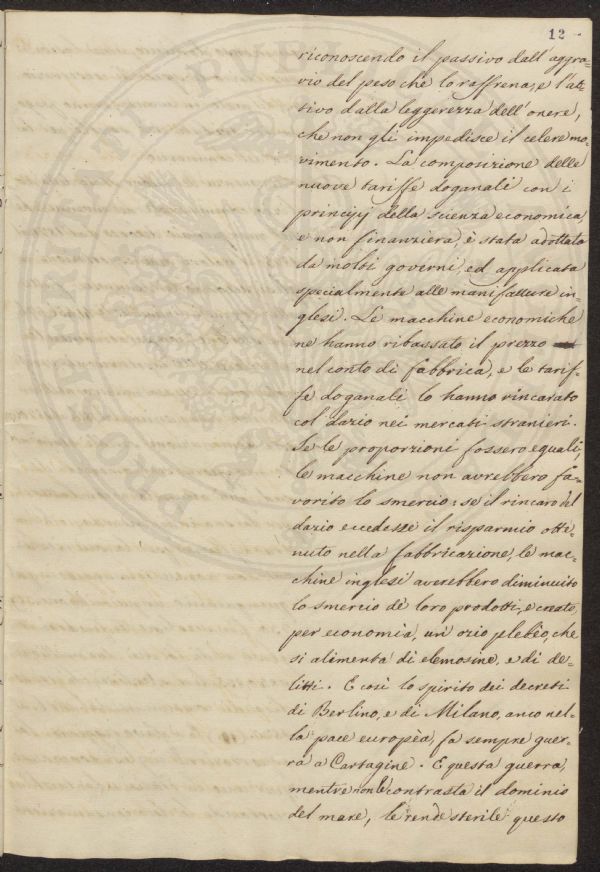 12
riconoscendo il passivo dall' aggra=
vio del peso che lo raffrena, e l'at=
tivo dalla leggerezza dell' onere,
che non gli impedisce il celere mo=
vimento. La composizione delle
nuove tariffe doganali con i
principj della scienza economica
e non finanziera, è stata adottata
da molti governi, ed applicata
specialmente alle manifatture in=
glesi. Le macchine economiche
ne hanno ribassato il prezzo
nel conto di fabbrica, e le tarif=
fe doganali lo hanno rincarato
col dazio nei mercati stranieri.
Se le proporzioni fossero eguali,
le macchine non avrebbero fa=
vorito lo smercio: se il rincaro del
dazio eccedesse il risparmio otte=
nuto nella fabbricazione, le mac=
chine inglesi averebbero diminuito
lo smercio de' loro prodotti, e creato,
per economia, un' ozio plebèo, che
si alimenta di elemosine, e di de=
litti. E così lo spirito dei decreti
di Berlino, e di Milano, anco nel=
la pace europèa, fa sempre guer=
ra a Cartagine. E questa guerra,
mentre non le contrasta il dominio
del mare, le rende sterile questo
PROPRIETATI PVBL